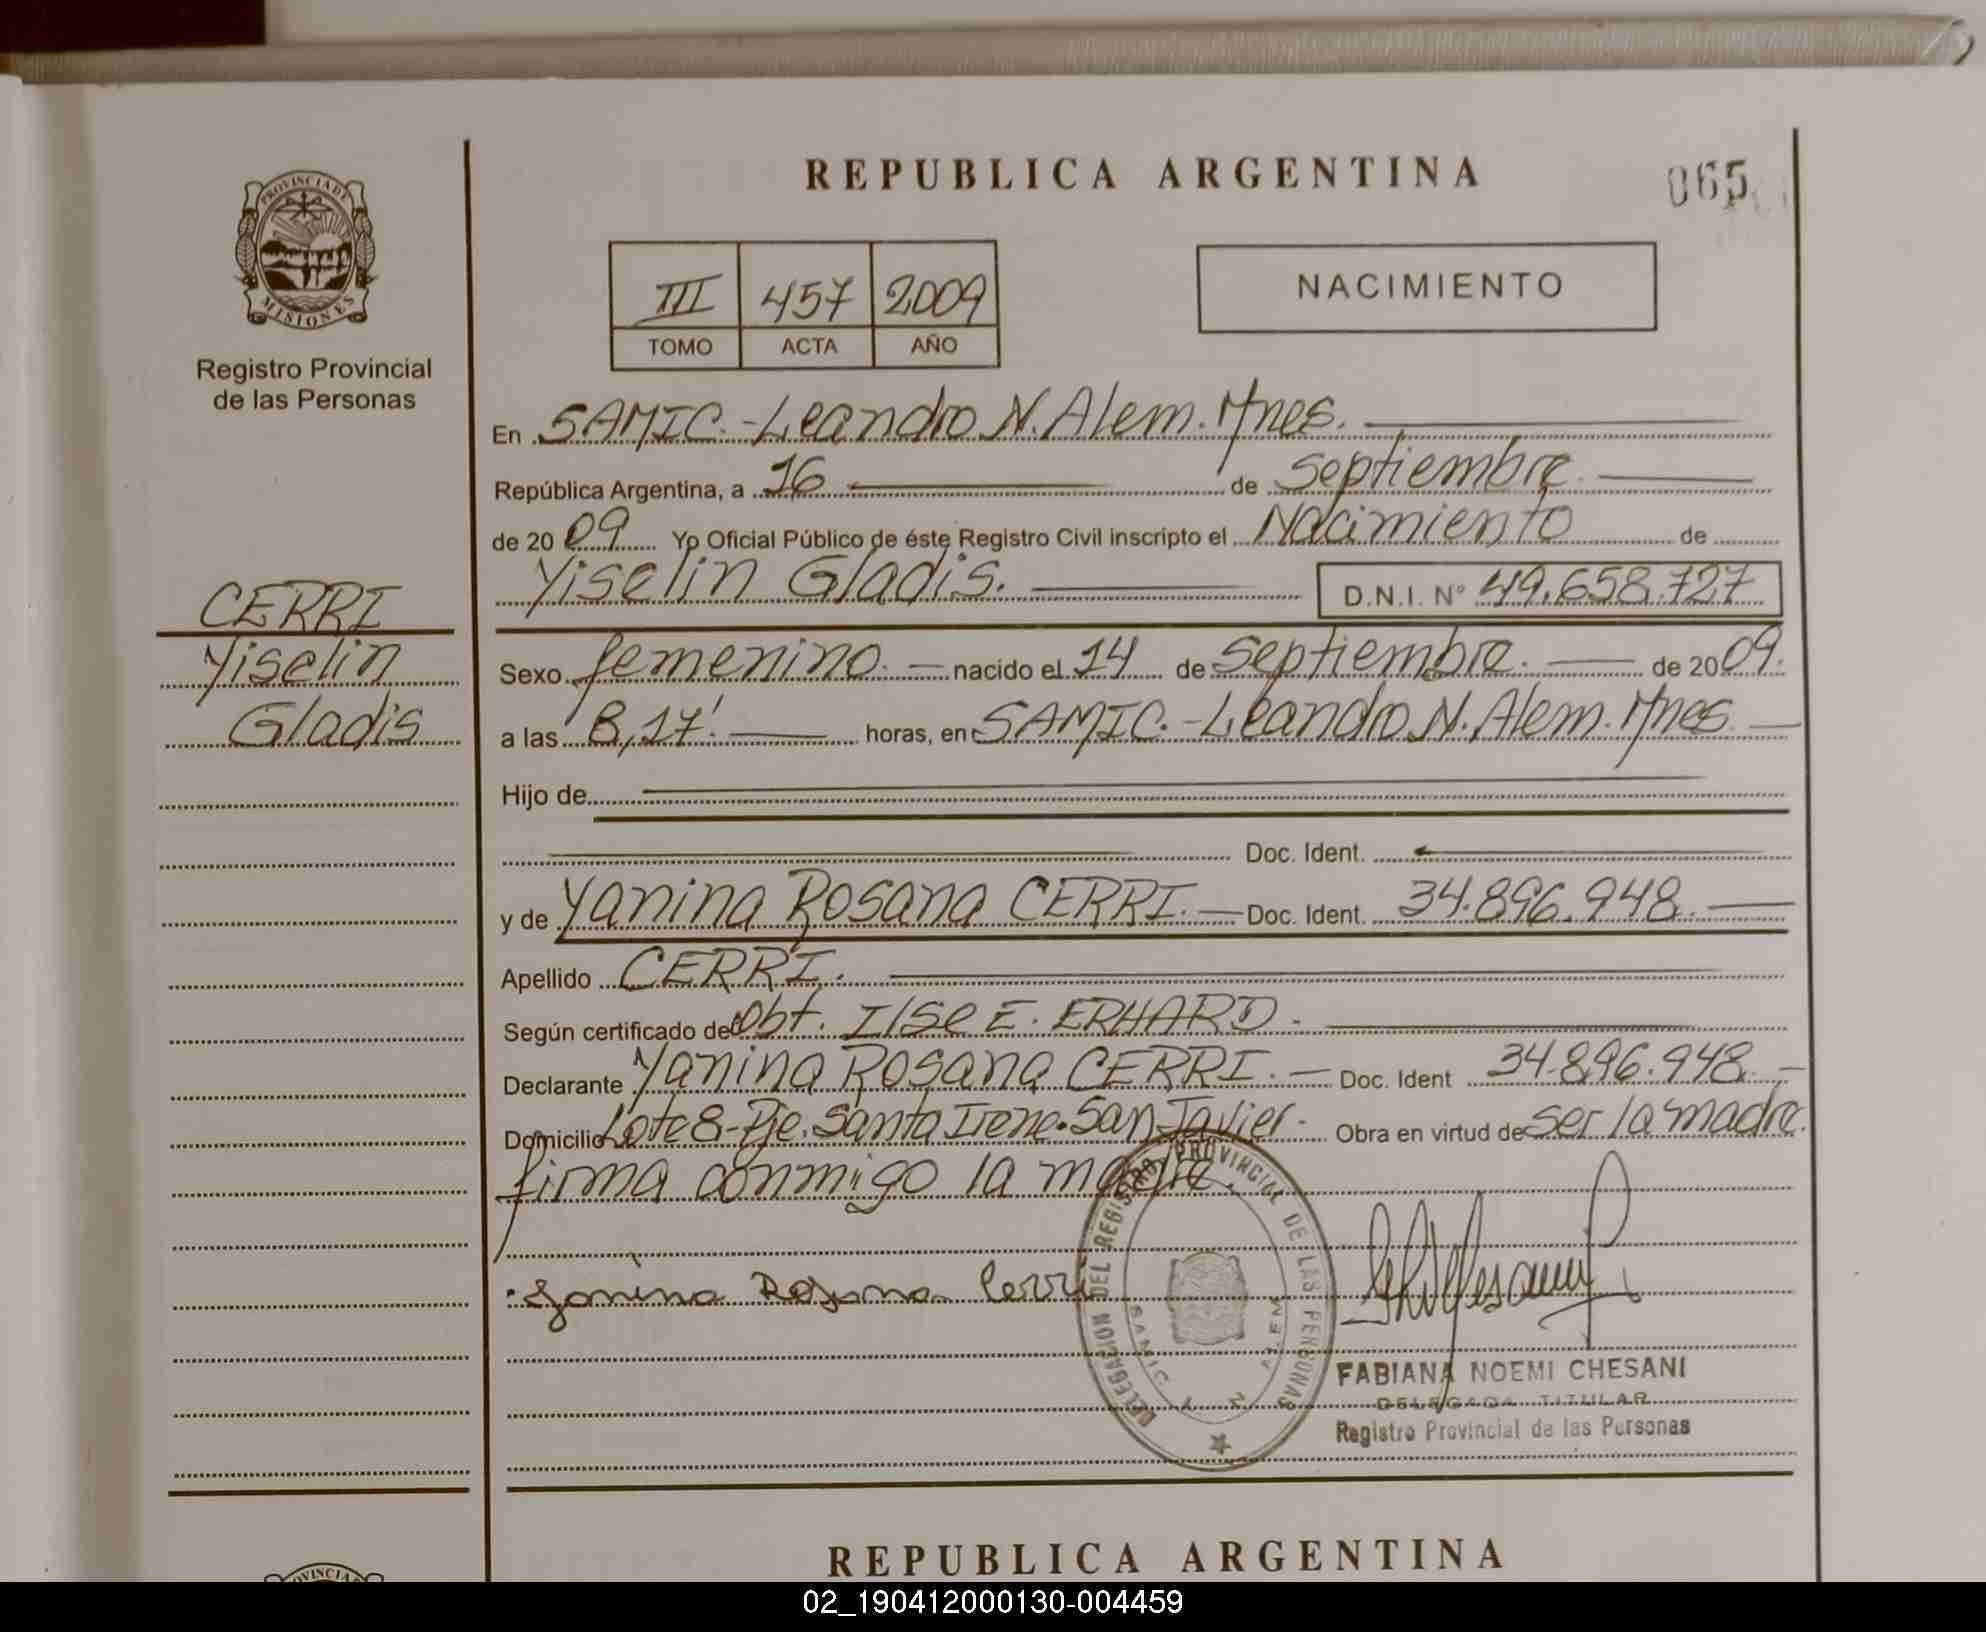 REPUBLICA ARGENTINA
065
PROVINCIA DE
MISIONES
Registro Provincial
de las Personas
III 457 2009
TOMO ACTA AÑO
NACIMIENTO
En SAMIC.-Leandro N. Alem. Mnes.
República Argentina, a 16 de Septiembre.
de 20 09 Yo Oficial Público de éste Registro Civil inscripto el Nacimiento de
Yiselin Gladis. D.N.I. N° 49.658.727
CERRI
Yiselin
Gladis
Sexo femenino. nacido el 14 de Septiembre. de 20 09.
a las 8,17' horas, en SAMIC.-Leandro N. Alem. Mnes
Hijo de
Doc. Ident.
y de Yanina Rosana CERRI. Doc. Ident. 34.896.948.
Apellido CERRI.
Según certificado de Obt. Ilse E. ERHARD.
Declarante Yanina Rosana CERRI. Doc. Ident 34.896.948.
Domicilio Lote 8-Pje. Santa Irene. San Javier. Obra en virtud de ser la madre.
firma conmigo la madre.
Yanina Rosana Cerri
DELEGACION DEL REGISTRO PROVINCIAL DE LAS PERSONAS
SAMIC L N ALEM
FABIANA NOEMI CHESANI
DELEGADA TITULAR
Registro Provincial de las Personas
REPUBLICA ARGENTINA
02_190412000130-004459